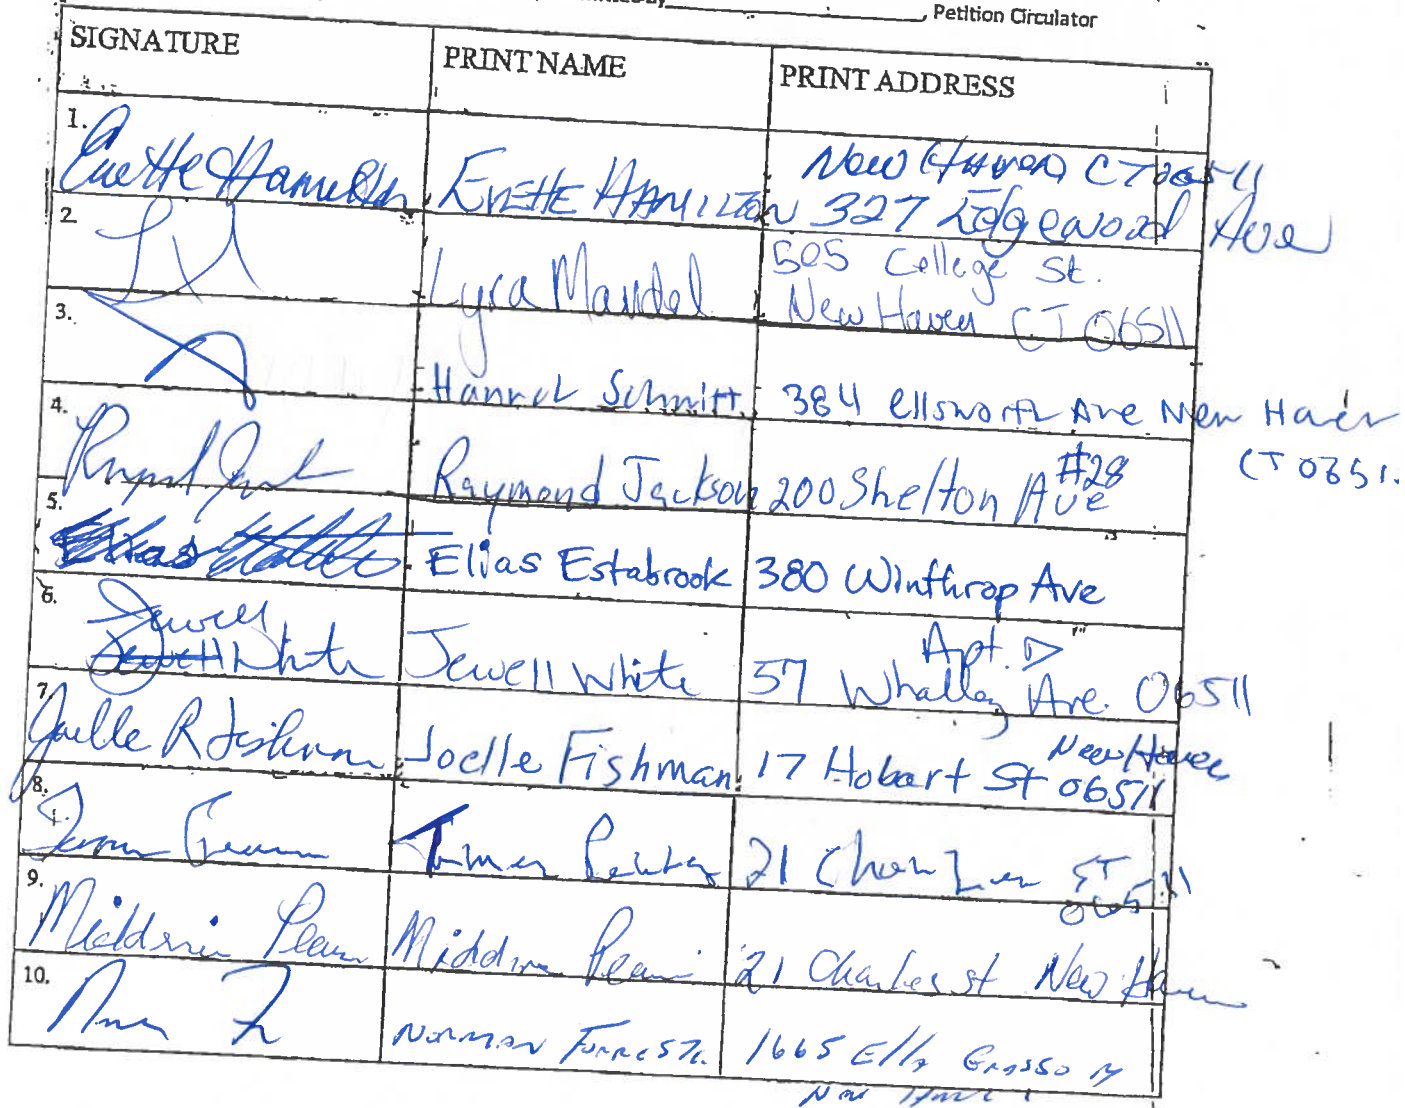 Petition Circulator
SIGNATURE PRINT NAME PRINT ADDRESS
1. Evette Hamilton EVETTE HAMILTON New Haven CT 06511
327 Edgewood Ave
2. Lyra Mandel 505 College St.
New Haven CT 06511
3. Hannah Schmitt 384 Ellsworth Ave New Haven
CT 0651
4. Raymond Jackson 200 Shelton Ave #28
5. Elias Estabrook 380 Winthrop Ave
6. Jewell
Jewell White Jewell White 57 Whalley Ave. Apt. D 06511
7. Joelle R Fishman Joelle Fishman 17 Hobart St New Haven
06511
8. 21 ST
06511
9. 21 Charles st New Haven
10. NORMAN 1665 Ella Grasso
New Haven